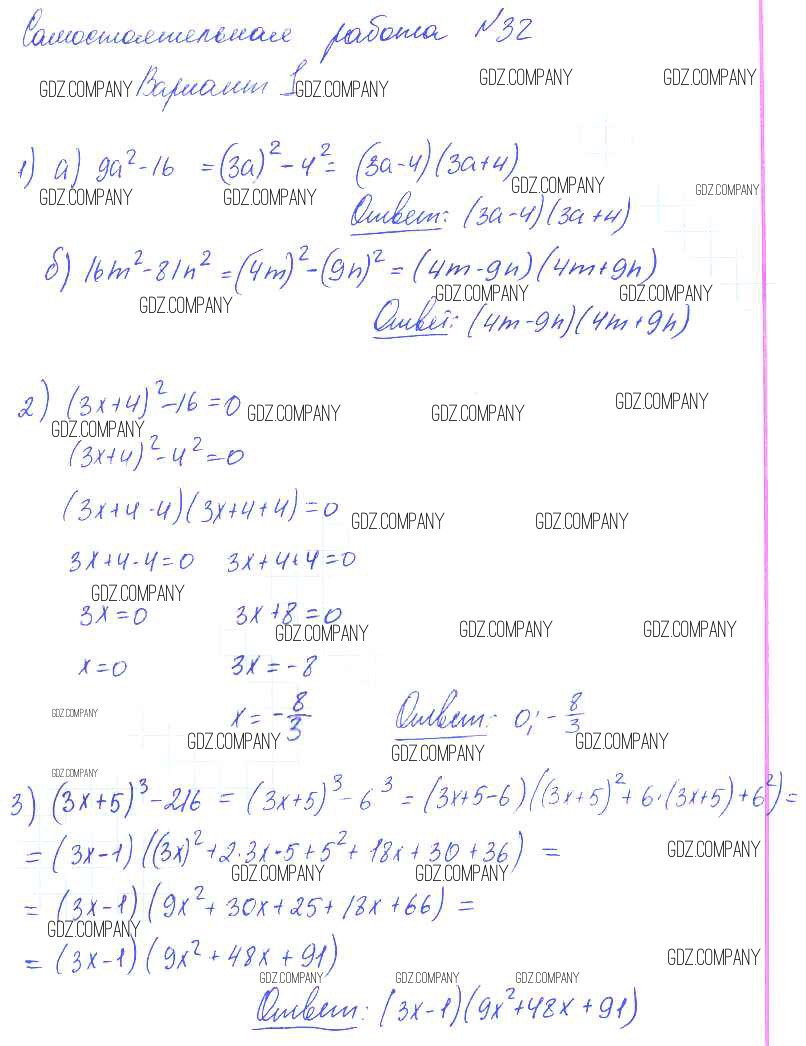 Самостоятельная работа №32
GDZ.COMPANY Вариант 1 GDZ.COMPANY GDZ.COMPANY GDZ.COMPANY
1) а) 9a²-16 = (3a)² - 4² = (3a-4)(3a+4)
GDZ.COMPANY GDZ.COMPANY GDZ.COMPANY GDZ.COMPANY
Ответ: (3a-4)(3a+4)
б) 16m²-81n² = (4m)²-(9n)² = (4m-9n)(4m+9n)
GDZ.COMPANY GDZ.COMPANY GDZ.COMPANY
Ответ: (4m-9n)(4m+9n)
2) (3x+4)²-16=0 GDZ.COMPANY GDZ.COMPANY GDZ.COMPANY
GDZ.COMPANY
(3x+4)²-4²=0
(3x+4-4)(3x+4+4)=0
GDZ.COMPANY GDZ.COMPANY
3x+4-4=0 3x+4+4=0
GDZ.COMPANY
3x=0 3x+8=0
GDZ.COMPANY GDZ.COMPANY GDZ.COMPANY
x=0 3x=-8
GDZ.COMPANY x=-8/3 Ответ: 0; -8/3
GDZ.COMPANY GDZ.COMPANY GDZ.COMPANY
GDZ.COMPANY
3) (3x+5)³-216 = (3x+5)³-6³ = (3x+5-6)((3x+5)²+6·(3x+5)+6²)=
= (3x-1)((3x)²+2·3x·5+5²+18x+30+36) = GDZ.COMPANY
GDZ.COMPANY GDZ.COMPANY
= (3x-1)(9x²+30x+25+18x+66) =
GDZ.COMPANY
= (3x-1)(9x²+48x+91) GDZ.COMPANY
GDZ.COMPANY GDZ.COMPANY GDZ.COMPANY
Ответ: (3x-1)(9x²+48x+91)